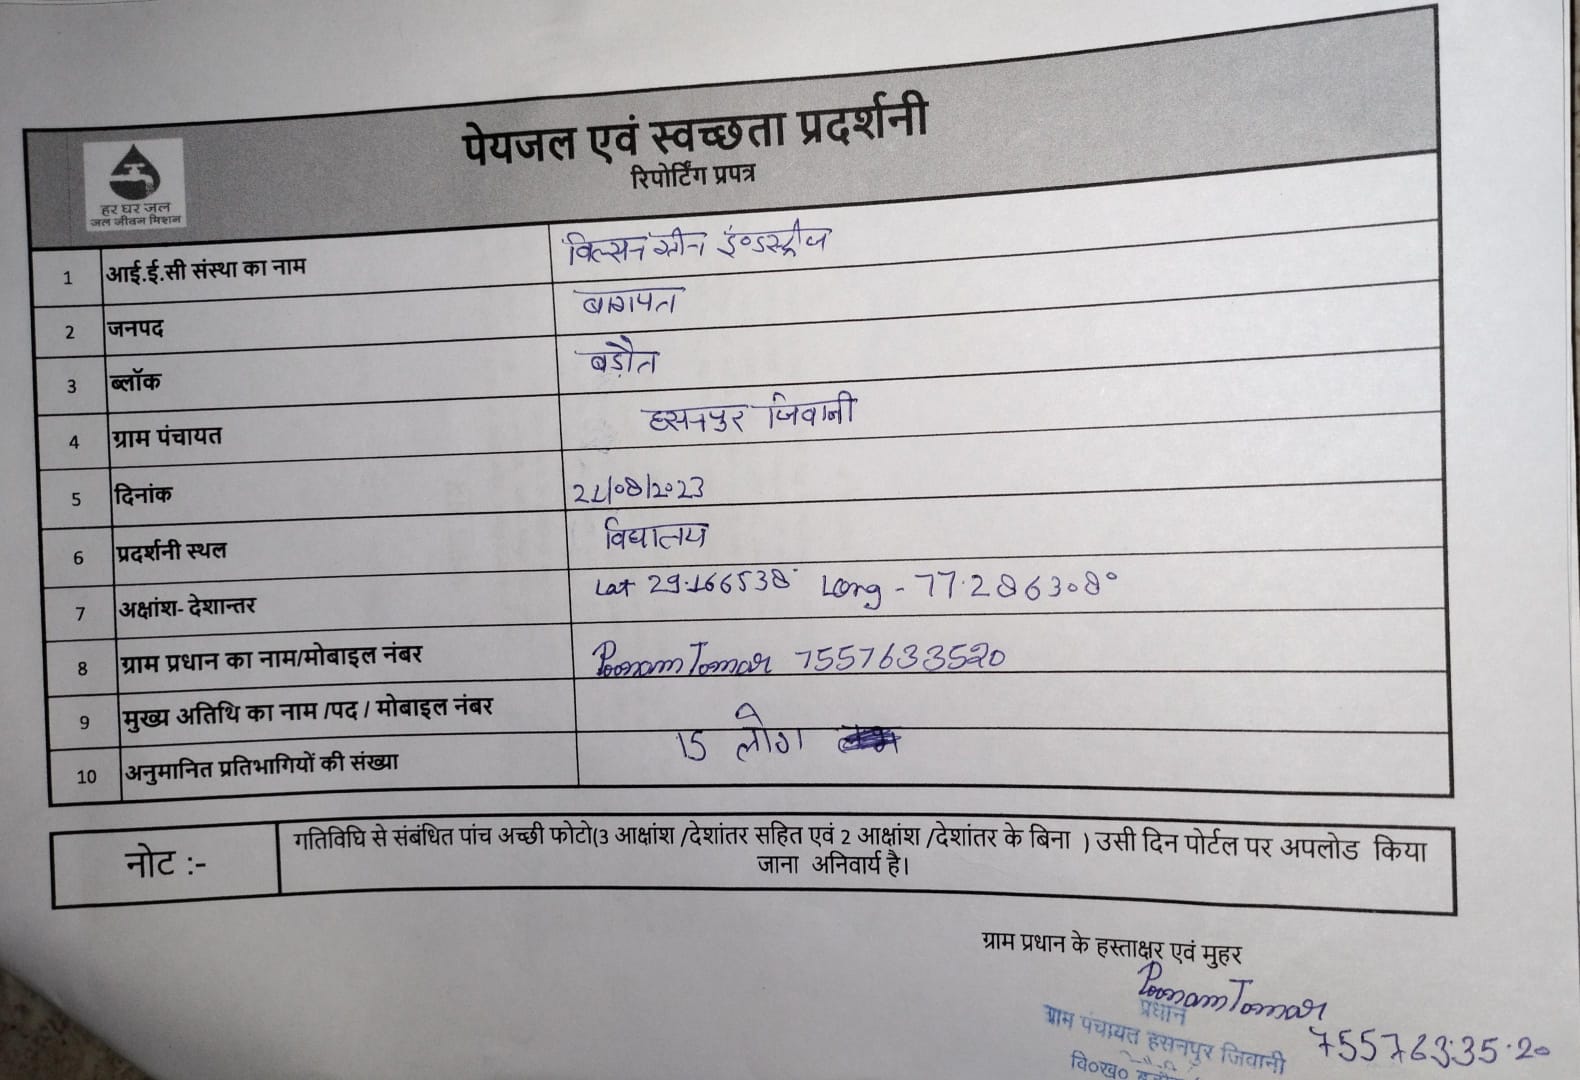 पेयजल एवं स्वच्छता प्रदर्शनी
रिपोर्टिंग प्रपत्र
हर घर जल
जल जीवन मिशन
1 आई.ई.सी संस्था का नाम विल्सन ग्रीन इंण्डस्ट्रीज
2 जनपद बागपत
3 ब्लॉक बड़ौत
4 ग्राम पंचायत हसनपुर जिवानी
5 दिनांक 21/08/2023
6 प्रदर्शनी स्थल विद्यालय
7 अक्षांश- देशान्तर Lat 29.166538° Long - 77.286308°
8 ग्राम प्रधान का नाम/मोबाइल नंबर Poonam Tomar 7557633520
9 मुख्य अतिथि का नाम /पद / मोबाइल नंबर
10 अनुमानित प्रतिभागियों की संख्या 15 लोग
नोट :- गतिविधि से संबंधित पांच अच्छी फोटो(3 आक्षांश /देशांतर सहित एवं 2 आक्षांश /देशांतर के बिना ) उसी दिन पोर्टल पर अपलोड किया
जाना अनिवार्य है।
ग्राम प्रधान के हस्ताक्षर एवं मुहर
Poonam Tomar
प्रधान
ग्राम पंचायत हसनपुर जिवानी
75576335.20
वि०ख०